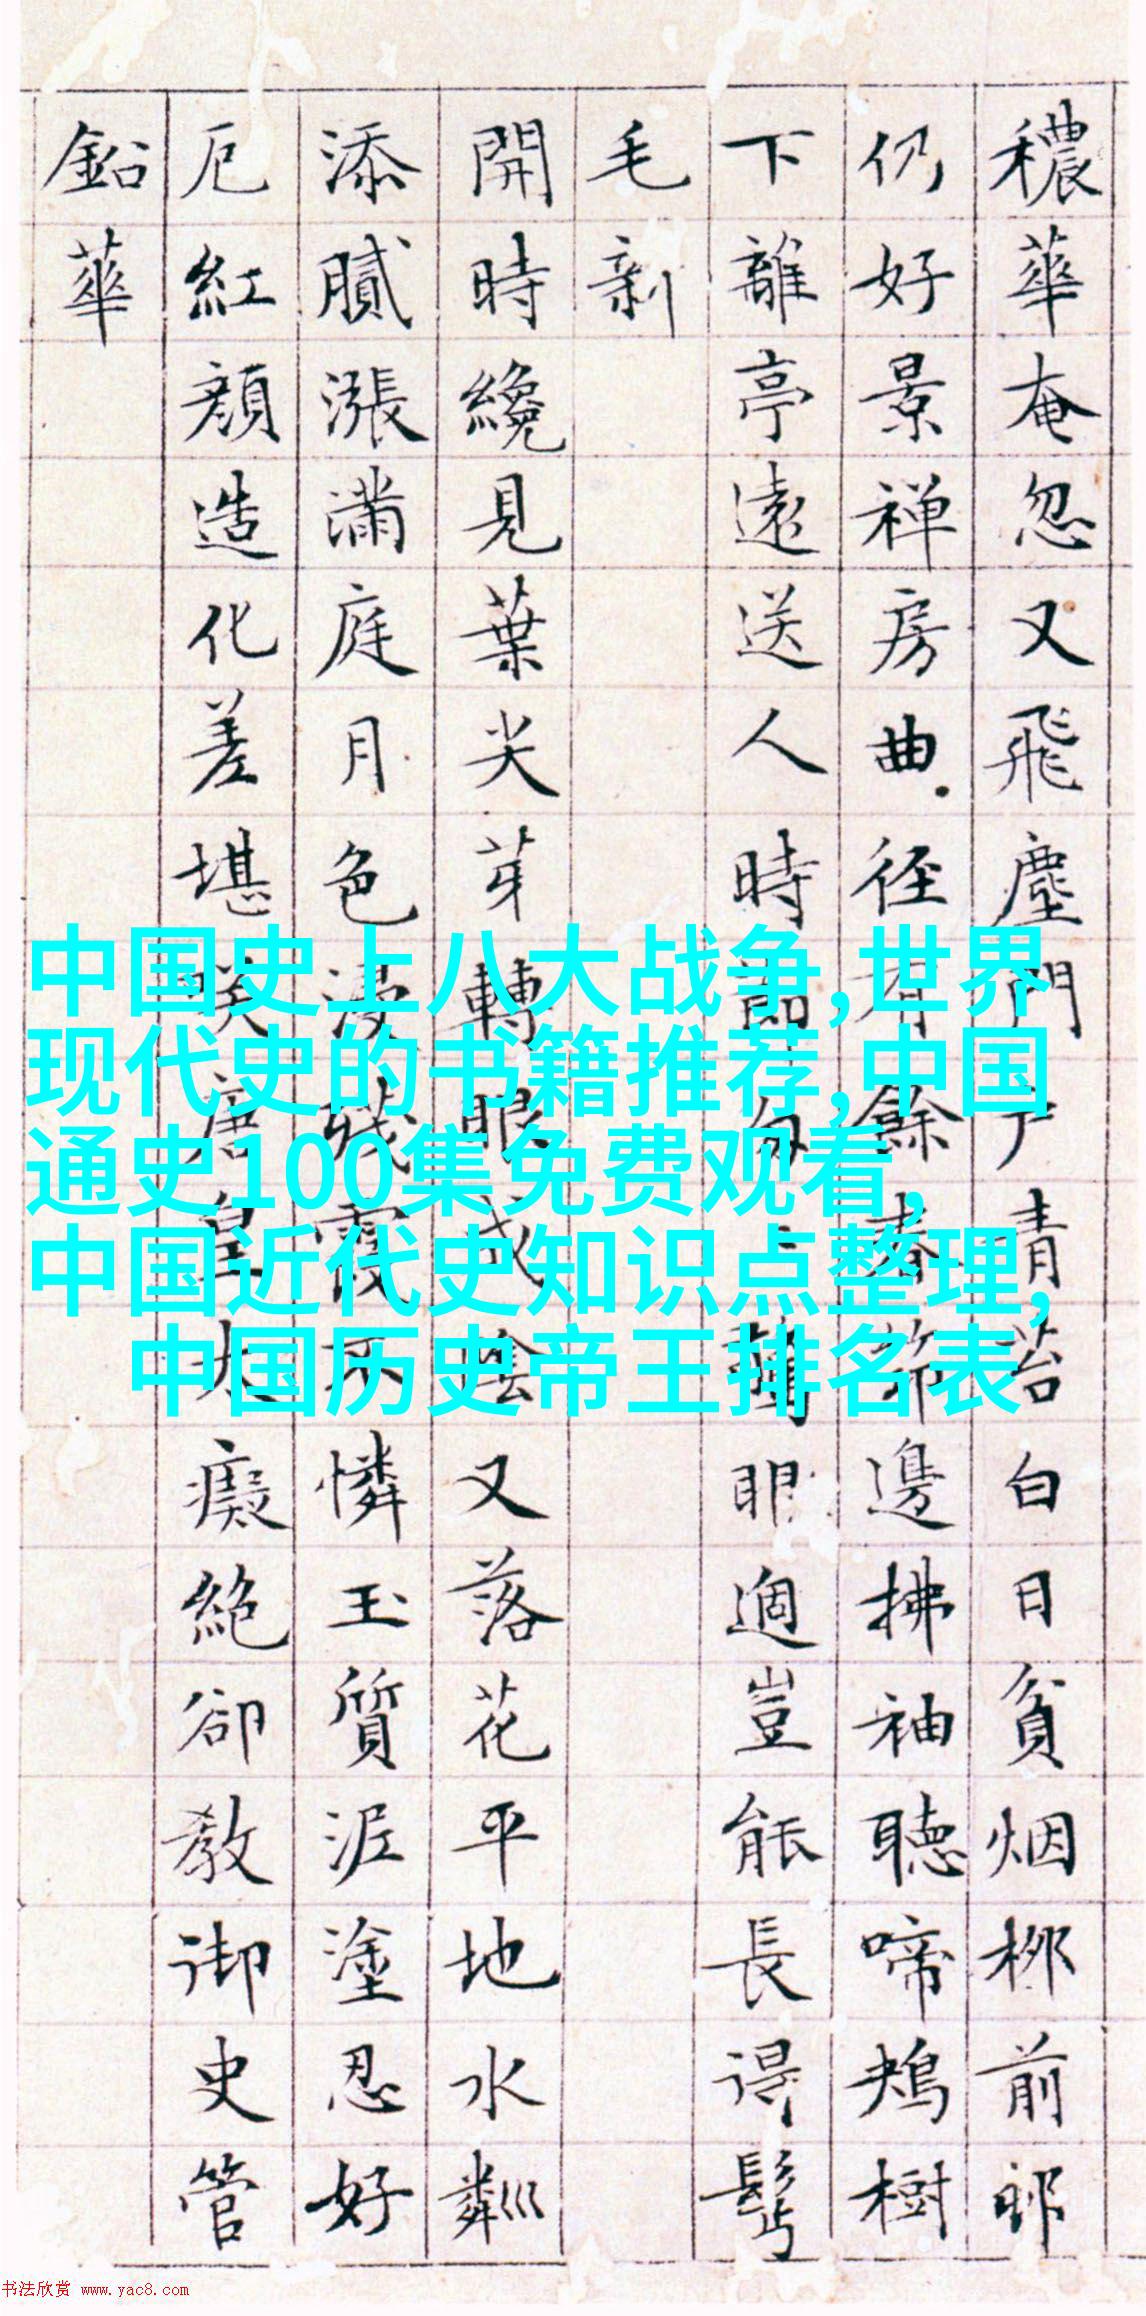 穠華奄忽又飛塵門戶青苔白日貧烟柳前邨
仍好景禅房曲.径有餘春筇邊拂袖聽啼鴂樹
下離亭遠送人時節匆眼過豈能長得
毛新
開時纔見葉尖芽轉眼成陰又落花平地水粼巛
添膩漲滿庭月色浸殘霞不憐玉質泥塗忍好
厄紅顏造化差堪笑唐皇太癡絕卻教御史管
鉛華
中国史上八大战争,世界
现代史的书籍推荐,中国
通史100集免费观看,
中国近代史知识点整理,
中国历史帝王排名表
书法欣赏 www.yac8.com